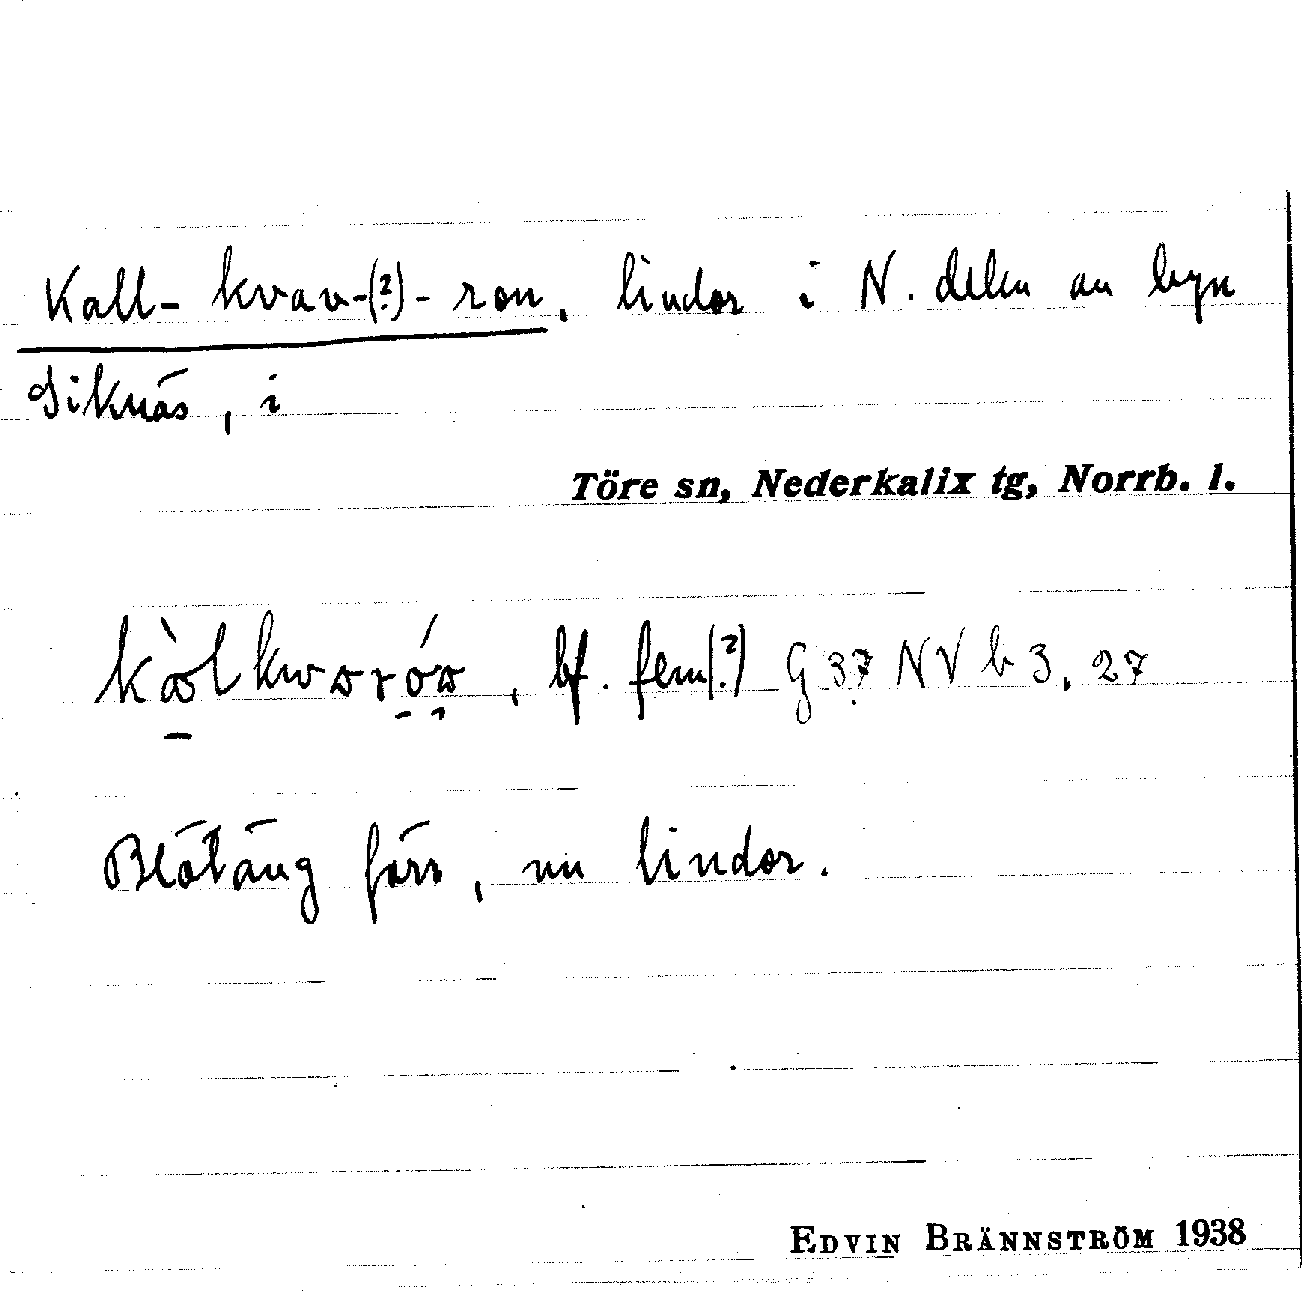 Kall-kvav-(?)-ron, lindor i N. delen av byn
Siknäs, i
Töre sn, Nederkalix tg, Norrb. l.
bf. fem(?) G 37 NV b 3, 27
Blötäng förr, nu lindor.
EDVIN BRÄNNSTRÖM 1938